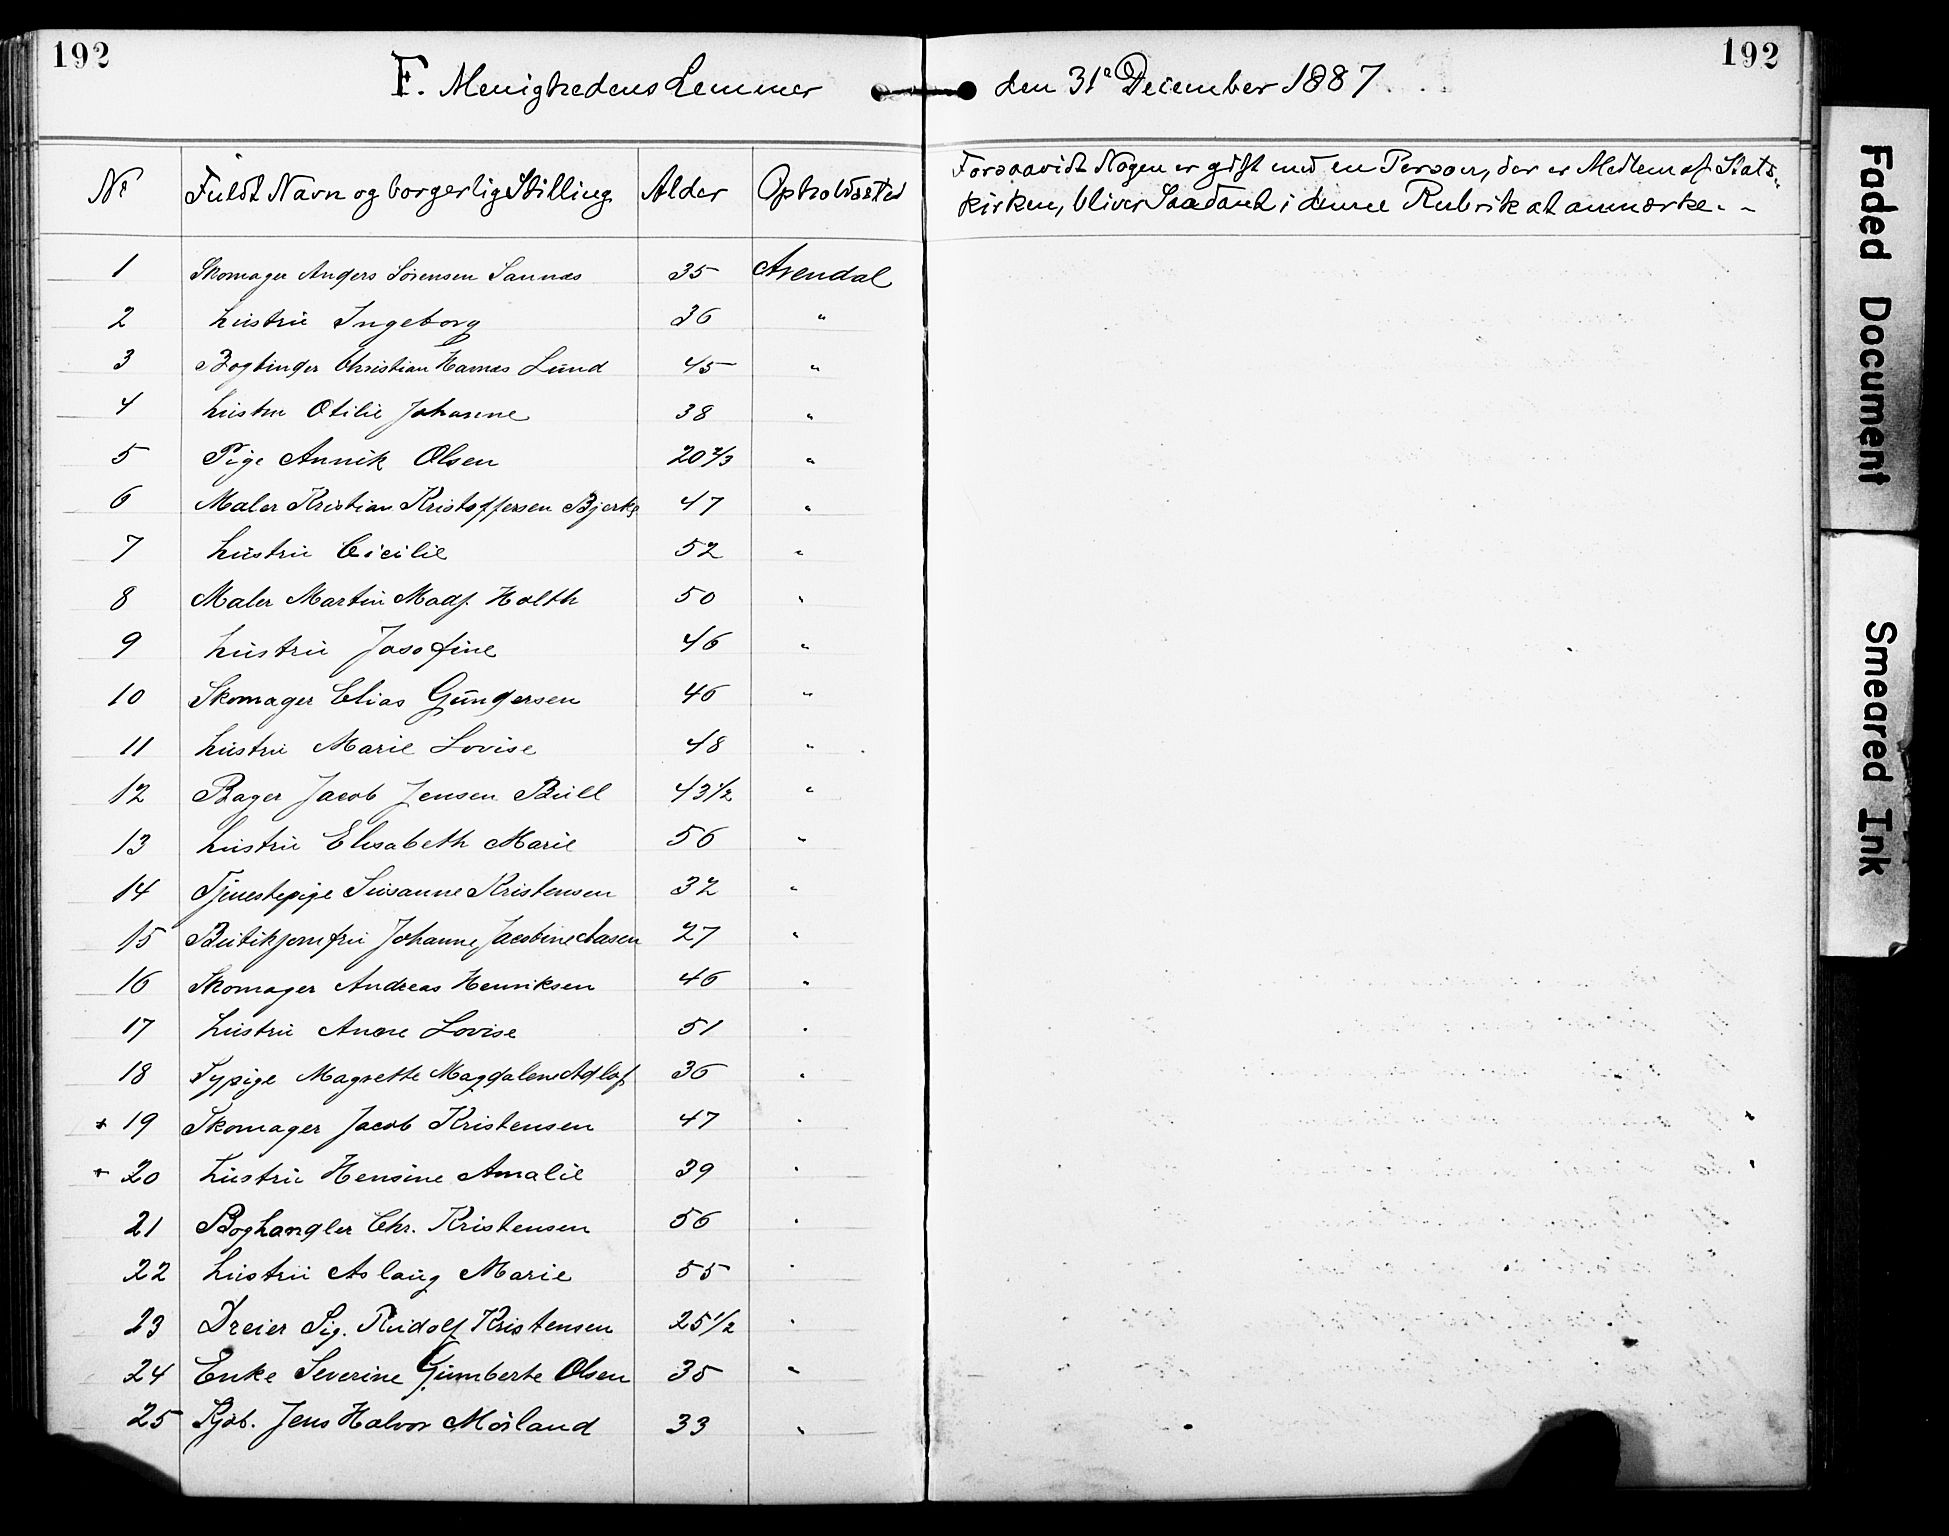 192
192
F. Menighedens Lemmer den 31e December 1887
No Fuldt Navn og borgerlig Stilling Alder Opholdssted Forsaavidt Nogen er gift med en Person, der er Medlem af Stats-
kirken, bliver Saadant i denne Rubrik at anmærke. -
1 Skomager Anders Sörensen Sannæs 35 Arendal
2 Hustru Ingeborg 36 "
3 Bogbinder Christian Hamas Lund 45 "
4 Hustru Otilie Johanne 38 "
5 Pige Annik Olsen 20 2/3 "
6 Maler Kristian Kristoffersen Bjerke 47 "
7 Hustru Cicilie 52 "
8 Maler Martin Mads. Holth 50 "
9 Hustru Josefine 46 "
10 Skomager Elias Gundersen 46 "
11 Hustru Marie Lovise 48 "
12 Bager Jacob Jensen Bull 43 1/2 "
13 Hustru Elisabeth Marie 56 "
14 Tjenestepige Susanne Kristensen 32 "
15 Butikjomfru Johanne Jacobine Aasen 27 "
16 Skomager Andreas Henriksen 46 "
17 Hustru Anne Lovise 51 "
18 Sypige Magrette Magdalene Adlofs 36 "
+ 19 Skomager Jacob Kristensen 47 "
+ 20 Hustru Hensine Amalie 39 "
21 Boghandler Chr. Kristensen 56 "
22 Hustru Aslaug Marie 55 "
23 Dreier Sig. Rudolf Kristensen 25 1/2 "
24 Enke Severine Gumberte Olsen 35 "
25 Kjøb. Jens Halvor Mörland 33 "
Faded Document
Smeared Ink